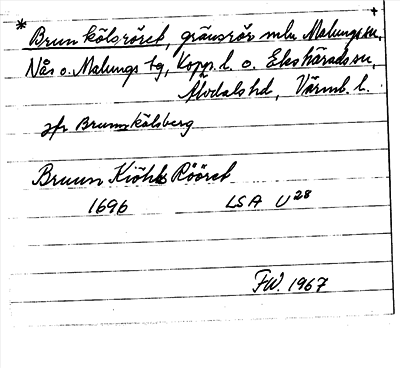 * Brunkölsröret, gränsrös mln Malungs sn, +
Nås o. Malungs tg, Kopp. l. o. Ekshärads sn,
Älvdals hd, Värml. l.
jfr Brunnkölsberg
Bruun Kiöhls Rööret
1696 LSA U 28
FW. 1967